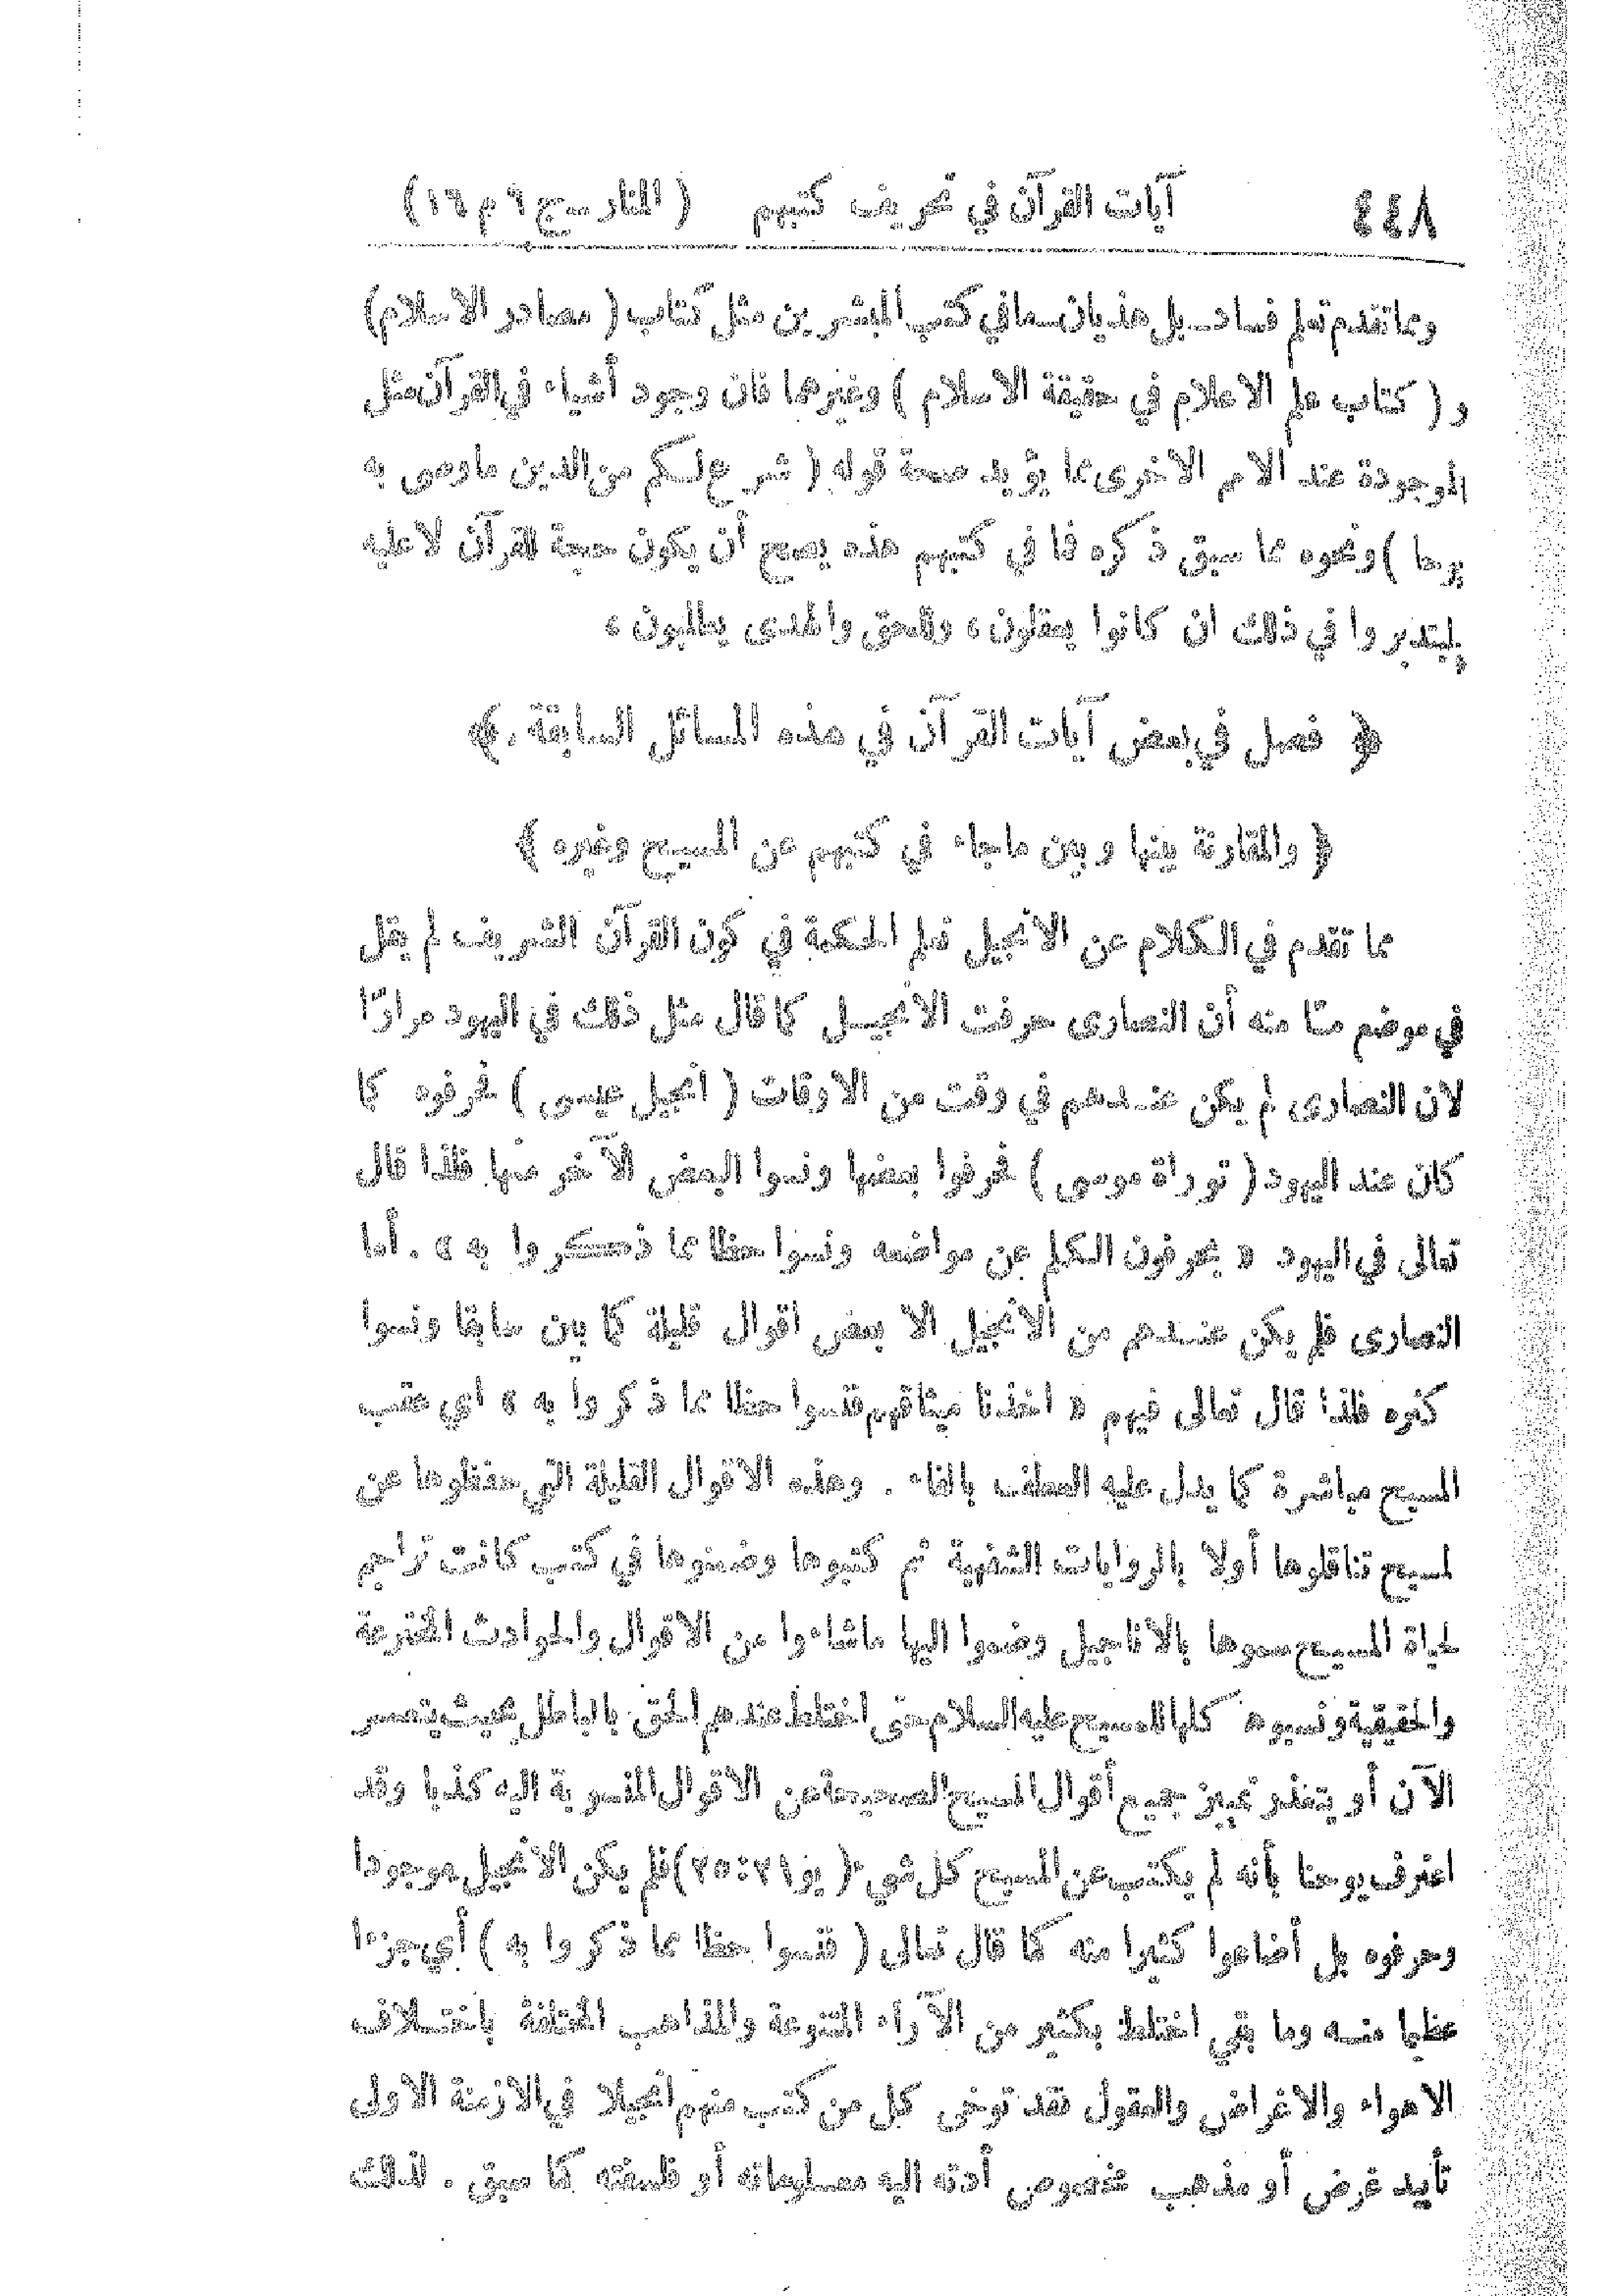 ٤٤٨ آيات القرآن في تحريف كتبهم (المنار ـ ج ٦ م ١٦)
ومما تقدم تعلم فساد ـ بل هذيان ـ ما في كتب المبشرين مثل كتاب ( مصادر الاسلام)
و ( كتاب علم الاعلام في حقيقة الاسلام ) وغيرها فان وجود أشياء في القرآن مثل
الموجودة عند الامم الاخرى مما يؤيد صحة قوله ( شرع لكم من الدين ما وصى به
نوحا ) ونحوه مما سبق ذكره فما في كتبهم هذه يصح أن يكون حجة للقرآن لا عليه
فليتدبروا في ذلك ان كانوا يعقلون ، وللحق والهدى يطلبون ،
﴿ فصل في بعض آيات القرآن في هذه المسائل السابقة . ﴾
﴿ والمقارنة بينها وبين ماجاء في كتبهم عن المسيح وغيره ﴾
مما تقدم في الكلام عن الانجيل تعلم الحكمة في كون القرآن الشريف لم يقل
في موضع مّا منه أن النصارى حرفت الانجيل كما قال مثل ذلك في اليهود مرارًا
لان النصارى لم يكن عندهم في وقت من الاوقات ( انجيل عيسى ) فحرفوه كما
كان عند اليهود ( توراة موسى ) فحرفوا بعضها ونسوا البعض الآخر منها فلذا قال
تعالى في اليهود « يحرفون الكلم عن مواضعه ونسوا حظا مما ذكروا به » . أما
النصارى فلم يكن عندهم من الانجيل الا بعض اقوال قليلة كما بين سابقا ونسوا
كثره فلذا قال تعالى فيهم « اخذنا ميثاقهم فنسوا حظا مما ذكروا به » اي عقب
المسيح مباشرة كما يدل عليه العطف بالفاء . وهذه الاقوال القليلة التي حفظوها عن
لمسيح تناقلوها أولا بالروايات الشفهية ثم كتبوها وضمنوها في كتب كانت تراجم
لحياة المسيح سموها بالاناجيل وضموا اليها ماشاءوا من الاقوال والحوادث المخترعة
والحقيقية ونسبوها كلها للمسيح عليه السلام حتى اختلط عندهم الحق بالباطل بحيث يتعسر
الآن أو يتعذر تمييز جميع أقوال المسيح الصحيحة عن الاقوال المنسوبة اليه كذبا وقد
اعترف يوحنا بأنه لم يكتب عن المسيح كل شيء ( يو ٢١:٢٥ ) فلم يكن الانجيل موجودا
وحرفوه بل أضاعوا كثيرا منه كما قال تعالى ( فنسوا حظا مما ذكروا به ) أي جزءا
عظيما منه وما بقي اختلط بكثير من الآراء المتنوعة والمذاهب المختلفة باختلاف
الاهواء والاغراض والعقول فقد توخى كل من كتب منهم انجيلا في الازمنة الاولى
تأييد غرض أو مذهب مخصوص أدته اليه معلوماته أو فلسفته كما سبق . لذلك